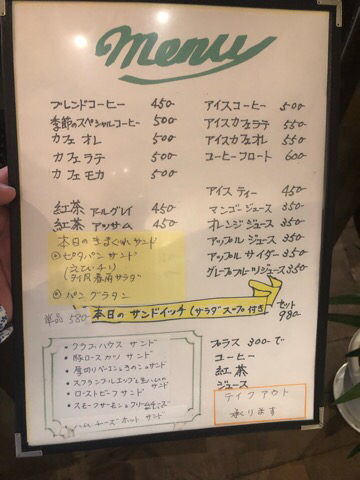 Menu
ブレンドコーヒー 450-
季節のスペシャルコーヒー 500
カフェ オレ 500
カフェ ラテ 500
カフェ モカ 500
紅茶 アールグレイ 450
紅茶 アッサム 450
アイスコーヒー 500
アイスカフェラテ 550
アイスカフェオレ 550
コーヒーフロート 600
アイス ティー 450
マンゴージュース 350
オレンジ ジュース 350
アップル ジュース 350
アップル サイダー 350
グレープフルーツジュース 350
本日のきまぐれサンド
ピタパンサンド
(えび,チリ)
タイ風春雨サラダ
パングラタン
単品 580 本日の サンドイッチ (サラダスープ付き) セット 980-
・クラブハウス サンド
・豚ロースカツ サンド
・厚切りベーコンときのこのサンド
・スクランブルエッグと生ハムのサンド
・ローストビーフ サンド
・スモークサーモンとクリームチーズ
・ハムチーズホット サンド
プラス 300-で
コーヒー
紅茶
ジュース
テイクアウト
承ります